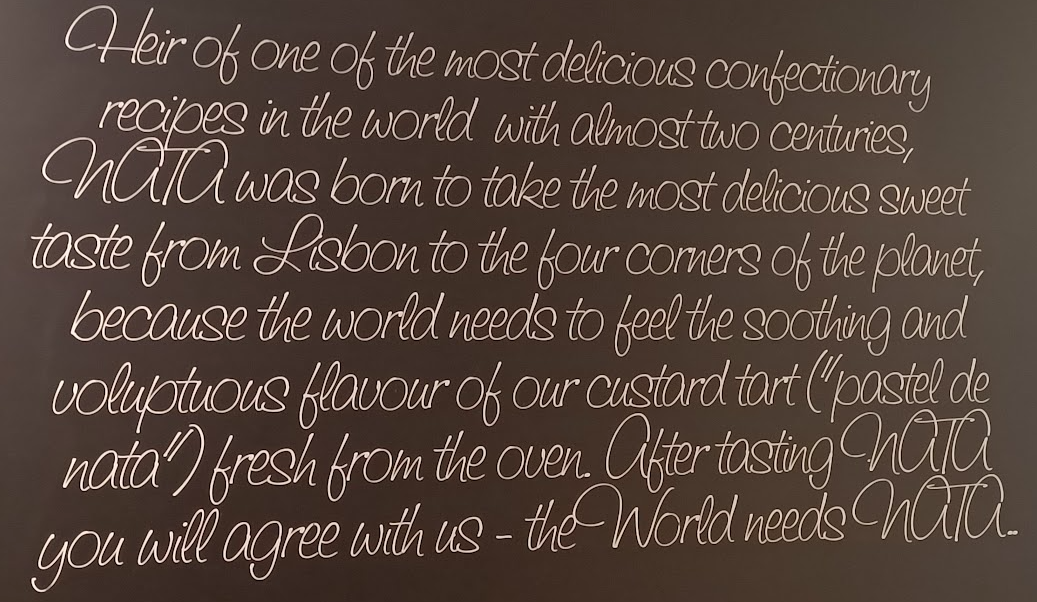 Heir of one of the most delicious confectionary
recipes in the world with almost two centuries,
NATA was born to take the most delicious sweet
taste from Lisbon to the four corners of the planet,
because the world needs to feel the soothing and
voluptuous flavour of our custard tart ("pastel de
nata") fresh from the oven. After tasting NATA
you will agree with us - the World needs NATA..